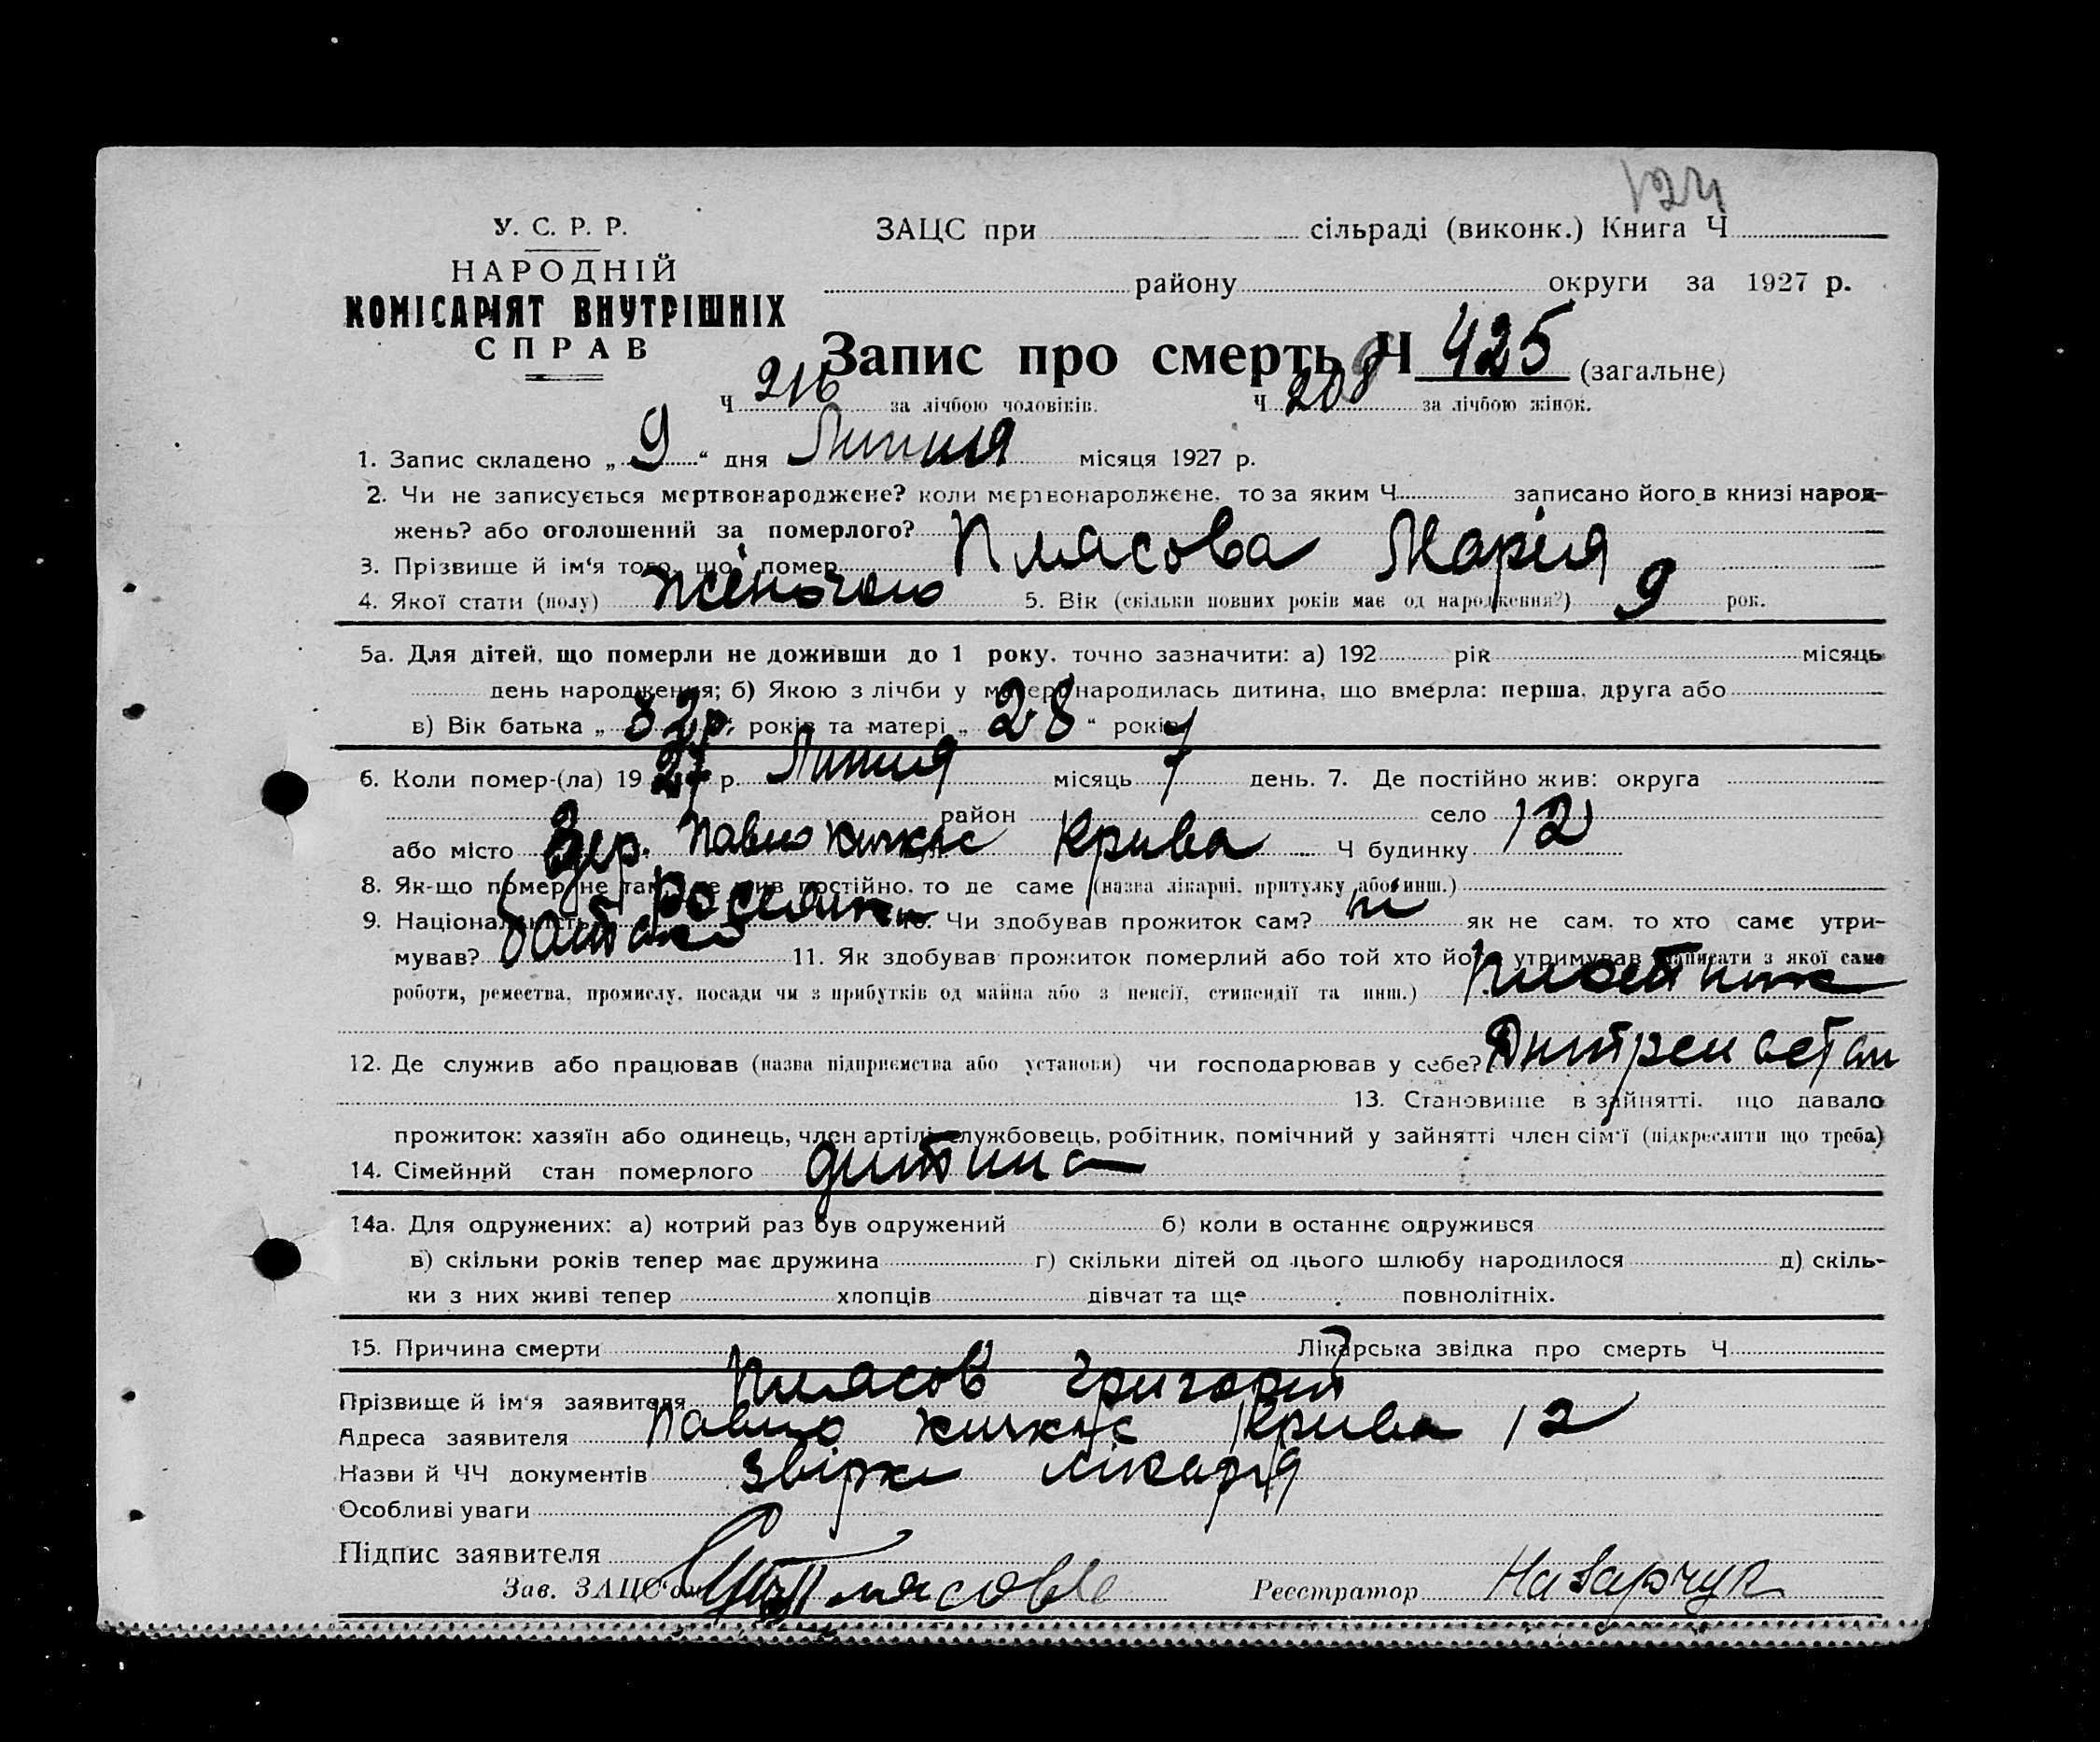 124
У. С. Р. Р.
НАРОДНІЙ
КОМІСАРІЯТ ВНУТРІШНІХ
СПРАВ
ЗАЦС при сільраді (виконк.) Книга Ч
району округи за 1927 р.
Запис про смерть Ч 425 (загальне)
Ч 216 за лічбою чоловіків. Ч 208 за лічбою жінок.
1. Запис складено „ 9 “ дня Липня місяця 1927 р.
2. Чи не записується мертвонароджене? коли мертвонароджене, то за яким Ч записано його в книзі народ-
жень? або оголошений за померлого?
3. Прізвище й ім'я того, що помер Плясова Марія
4. Якої стати (полу) жіночою 5. Вік (скільки повних років має од народження?) 9 рок.
5а. Для дітей, що померли не доживши до 1 року, точно зазначити: а) 192 рік місяць
день народження; б) Якою з лічби у матері народилась дитина, що вмерла: перша, друга або
в) Вік батька „ 32 р. років та матері „ 28 “ років
6. Коли помер-(ла) 19 27 р. Липня місяць 7 день. 7. Де постійно жив: округа
район село
або місто Павло Кичкас Крива Ч будинку 12
8. Як-що помер не там, де жив постійно, то де саме (назва лікарні, притулку або инш.)
9. Національність 10. Чи здобував прожиток сам? ні як не сам, то хто саме утри-
мував? батько 11. Як здобував прожиток померлий або той хто його утримував (написати з якої саме
роботи, ремества, промислу, посади чи з прибутків од майна або з пенсії, стипендії та инш.) плотник
12. Де служив або працював (назва підприємства або установи) чи господарював у себе?
13. Становище в зайнятті, що давало
прожиток: хазяїн або одинець, член артілі, службовець, робітник, помічний у зайнятті член сім'ї (підкреслити що треба)
14. Сімейний стан померлого дитина
14а. Для одружених: а) котрий раз був одружений б) коли в останнє одружився
в) скільки років тепер має дружина г) скільки дітей од цього шлюбу народилося д) скіль-
ки з них живі тепер хлопців дівчат та ще повнолітніх.
15. Причина смерти Лікарська звідка про смерть Ч
Прізвище й ім'я заявителя Плясов Григорій
Адреса заявителя Павло Кичкас Крива 12
Назви й ЧЧ документів лікаря
Особливі уваги
Підпис заявителя
Зав. ЗАЦС'ом Реєстратор Назарчук